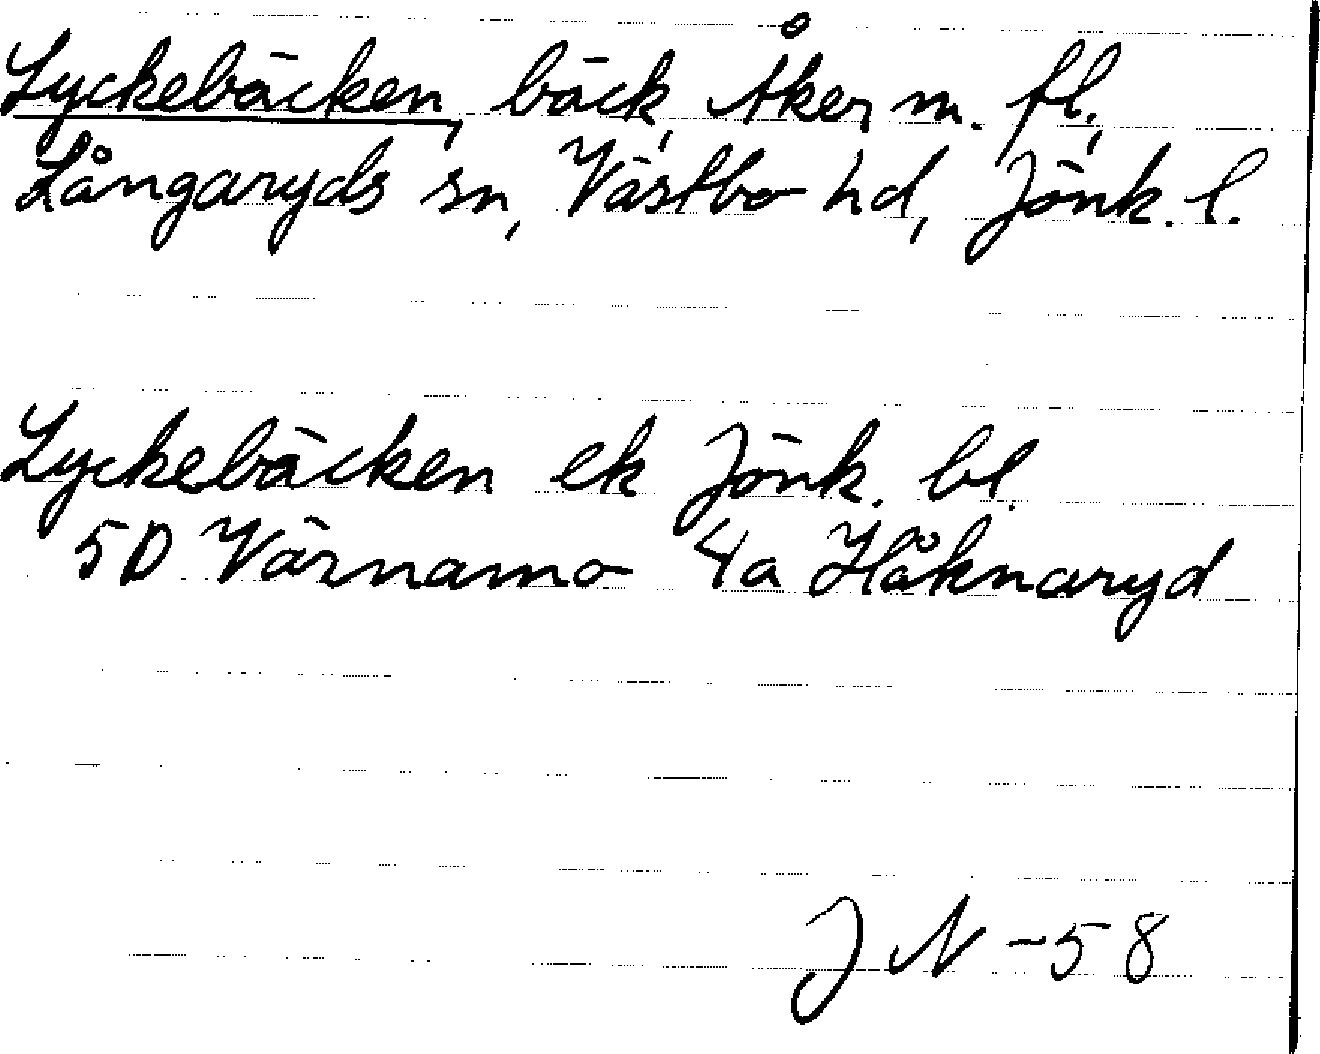 Lyckebäcken, bäck, Åker m. fl.,
Långaryds sn, Västbo hd, Jönk. l.
Lyckebäcken ek Jönk. bl.
5D Värnamo 4a Håknaryd
JN -58